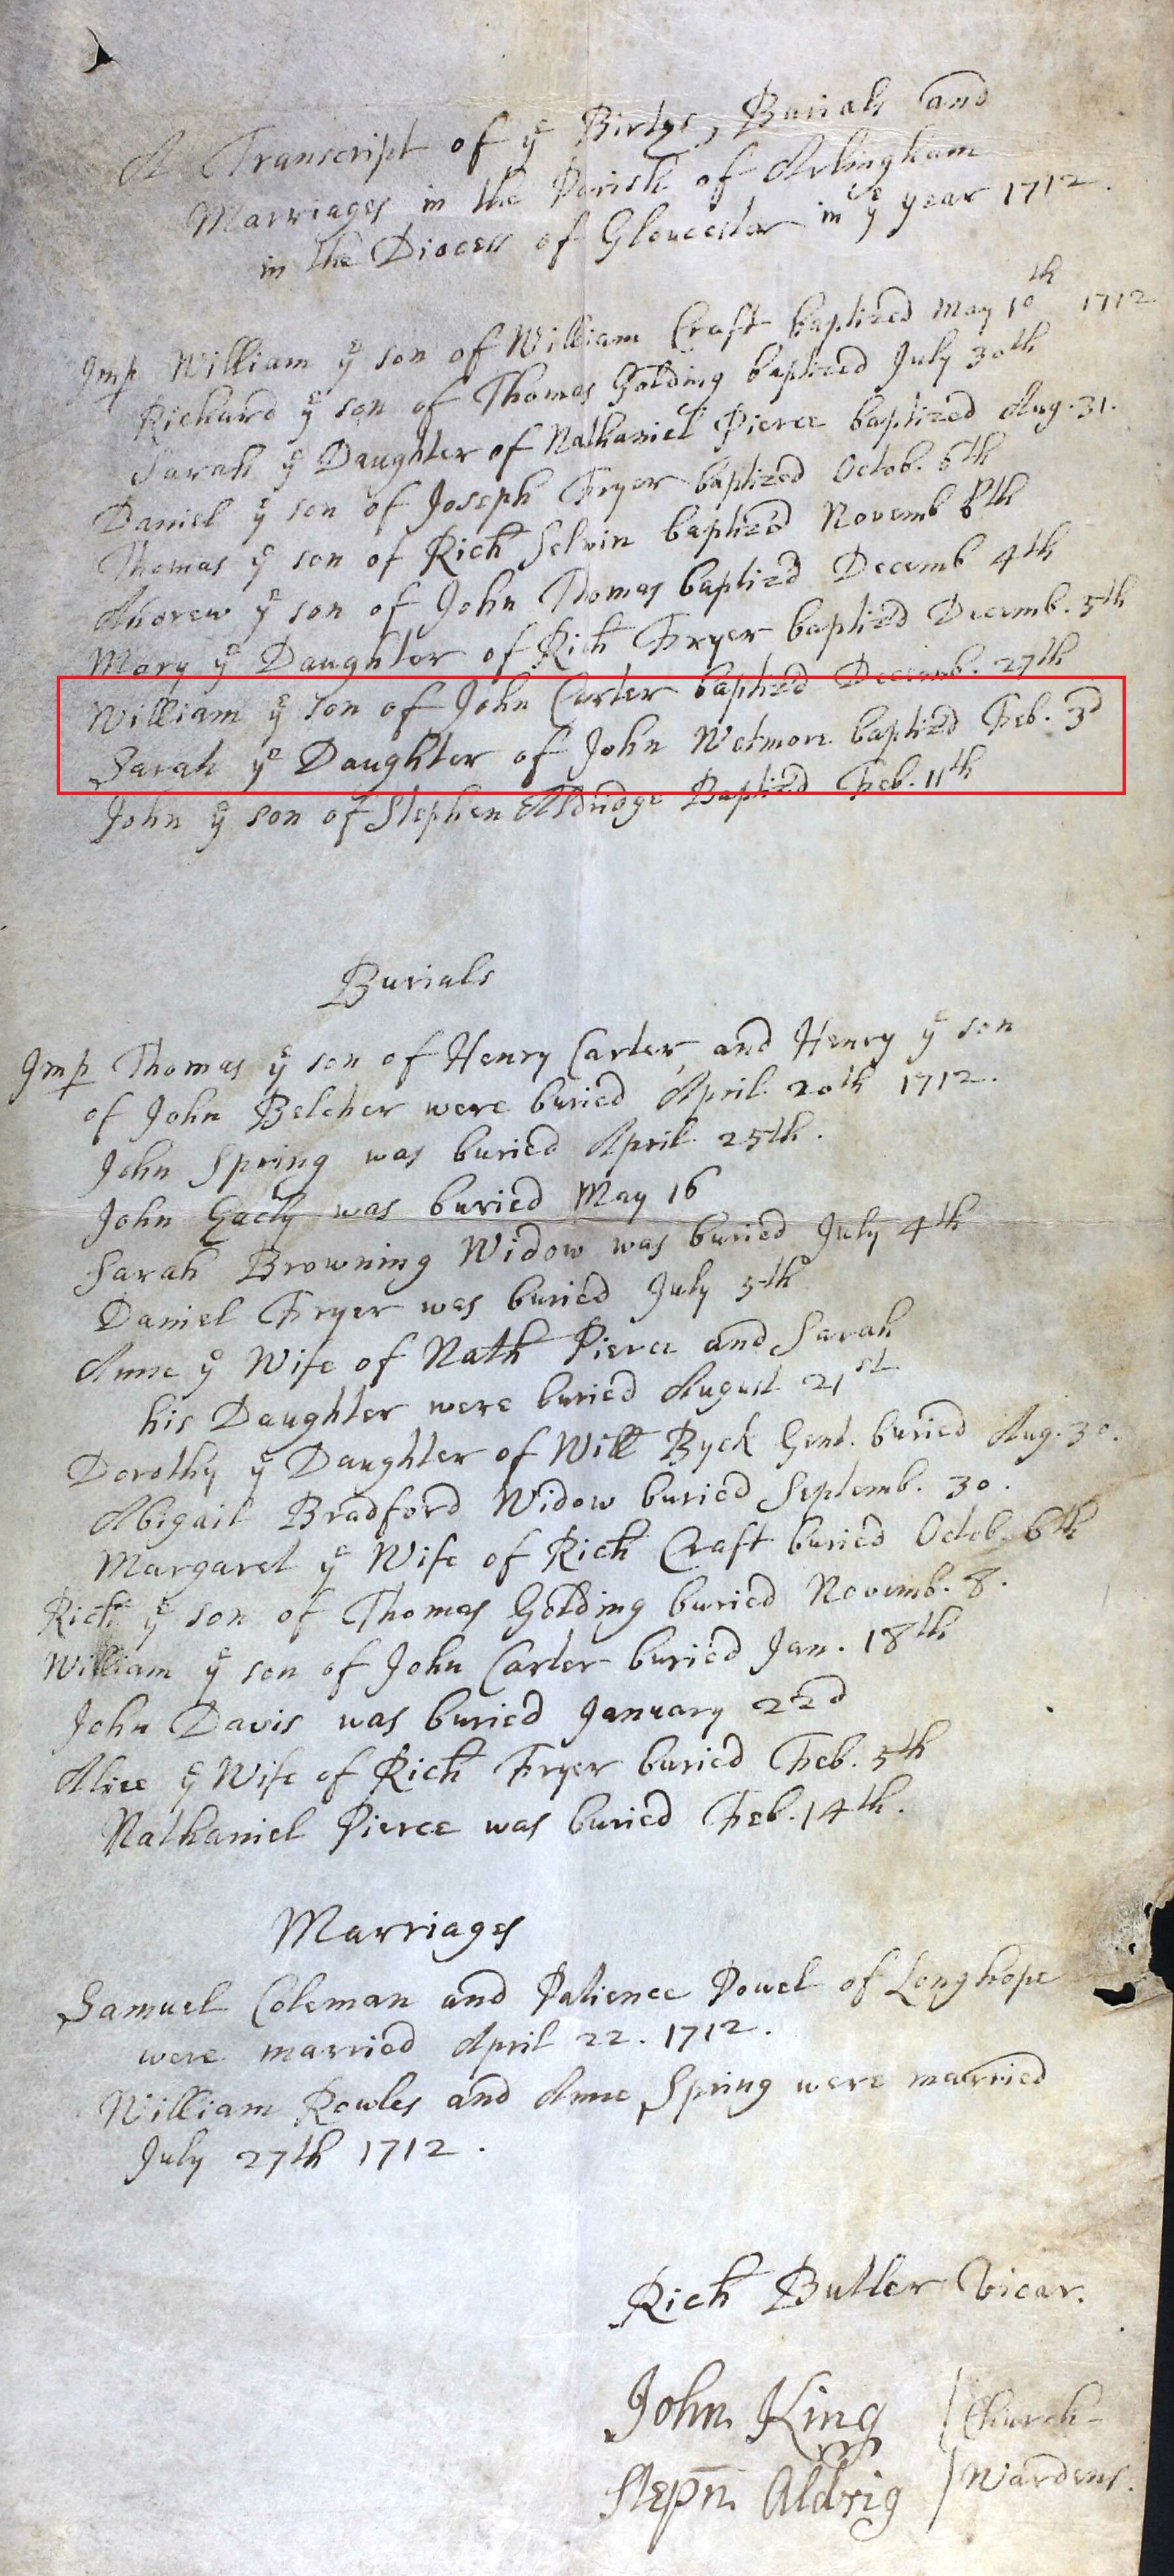 A Transcript of yᵉ Birtys, Burials and
Marriages in the Parish of Arlingham
in the Diocess of Gloucester in yᵉ year 1712.
Imp William yᵉ son of William Craft baptized May 10th 1712
Richard yᵉ son of Thomas Golding baptized July 30th
Sarah yᵉ Daughter of Nathaniel Pierce baptized Aug. 31.
Daniel yᵉ son of Joseph Fryer baptized Octob. 6th
Thomas yᵉ son of Rich Selvin baptizd Novemb 8th
Andrew yᵉ son of John Thomas baptizd Decemb 4th
Mary yᵉ Daughter of Rich Fryer baptizd Decemb. 5th
William yᵉ son of John Carter baptizd Decemb. 27th
Sarah yᵉ Daughter of John Wetmore baptizd Feb. 3d
John yᵉ son of Stephen Aldridge Baptizd Feb. 11th
Burials
Imp Thomas yᵉ son of Henry Carter and Henry yᵉ son
of John Belcher were buried April 20th 1712.
John Spring was buried April 25th.
John Eacly was buried May 16
Sarah Browning Widow was buried July 4th
Daniel Fryer was buried July 5th
Anne yᵉ Wife of Nath Pierce and Sarah
his Daughter were buried August 21st
Dorothy yᵉ Daughter of Will Byck Gent. buried Aug. 30.
Abigail Bradford Widow buried Septemb. 30.
Margaret yᵉ Wife of Rich Craft buried Octob. 6th
Rich yᵉ son of Thomas Golding buried Novemb. 8.
William yᵉ son of John Carter buried Jan. 18th
John Davis was buried January 22d
Alice yᵉ Wife of Rich Fryer buried Feb. 5th
Nathaniel Pierce was buried Feb. 14th.
Marriages
Samuel Coleman and Patience Powel of Longhope
were married April 22. 1712.
William Rowles and Anne Spring were married
July 27th 1712.
Rich Butler Vicar.
John King Church-
Stepn Aldrig Wardens.